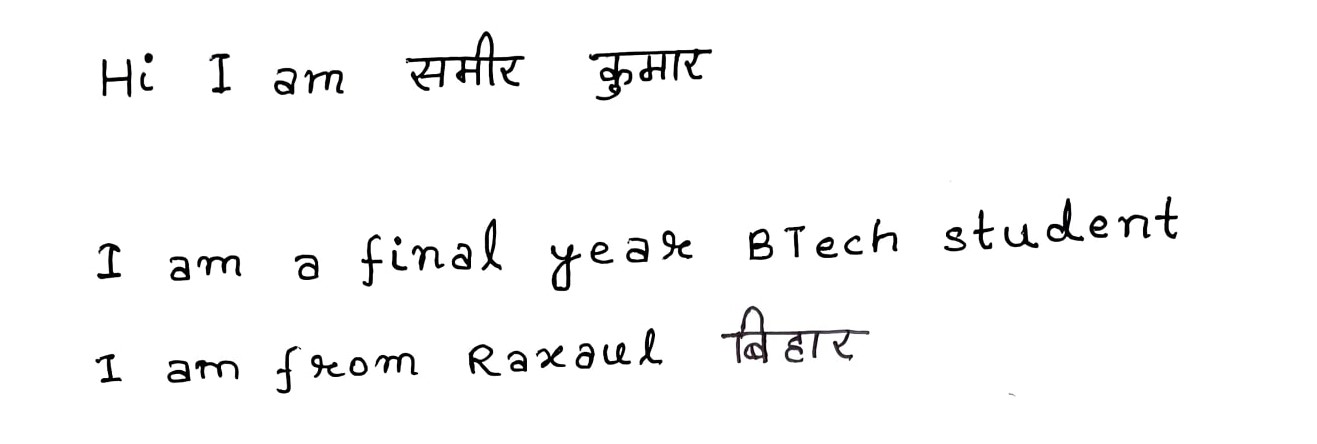 Hi I am समीर कुमार
I am a final year BTech student
I am from Raxaul बिहार